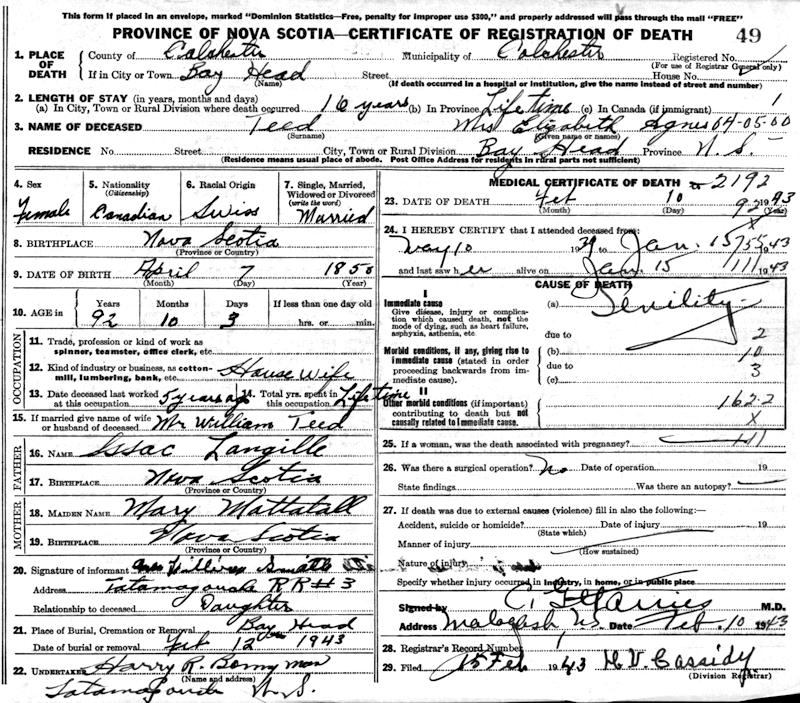 This form if placed in an envelope, marked "Dominion Statistics—Free, penalty for improper use $300," and properly addressed will pass through the mail "FREE"
PROVINCE OF NOVA SCOTIA—CERTIFICATE OF REGISTRATION OF DEATH 49
1. PLACE OF DEATH County of Colchester Municipality of Colchester Registered No.
(For use of Registrar General only)
If in City or Town Bay Head Street House No.
(Name) (If death occurred in a hospital or institution, give the name instead of street and number)
2. LENGTH OF STAY (in years, months and days)
(a) In City, Town or Rural Division where death occurred 16 years (b) In Province Life time (c) In Canada (if immigrant) 1
3. NAME OF DECEASED Teed Mrs Elizabeth Agnes 04-05-00
(Surname) (Given name or names)
RESIDENCE No. Street City, Town or Rural Division Bay Head Province N.S.
(Residence means usual place of abode. Post Office Address for residents in rural parts not sufficient)
4. Sex Female
5. Nationality (Citizenship) Canadian
6. Racial Origin Swiss
7. Single, Married, Widowed or Divorced (write the word) Married
8. BIRTHPLACE Nova Scotia
(Province or Country)
9. DATE OF BIRTH April 7 1850
(Month) (Day) (Year)
10. AGE in Years Months Days If less than one day old
92 10 3 hrs. or min.
OCCUPATION
11. Trade, profession or kind of work as spinner, teamster, office clerk, etc.
12. Kind of industry or business, as cotton-mill, lumbering, bank, etc. House Wife
13. Date deceased last worked at this occupation 5 years ago 14. Total yrs. spent in this occupation Life time
15. If married give name of wife or husband of deceased Mr William Teed
FATHER
16. NAME Issac Langille
17. BIRTHPLACE Nova Scotia
(Province or Country)
MOTHER
18. MAIDEN NAME Mary Mattatall
19. BIRTHPLACE Nova Scotia
(Province or Country)
20. Signature of informant
Address Tatamagouche RR#3
Relationship to deceased Daughter
21. Place of Burial, Cremation or Removal Bay Head
Date of burial or removal Feb 12 1943
22. UNDERTAKER Harry R. Bonnyman
(Name and address)
Tatamagouche N.S.
MEDICAL CERTIFICATE OF DEATH 2192
23. DATE OF DEATH Feb 10 1943
(Month) (Day) 92 (Year)
24. I HEREBY CERTIFY that I attended deceased from:
May 10 1939 to Jan. 15 1943
and last saw her alive on Jan. 15 1943
CAUSE OF DEATH
I
Immediate cause (a) Senility
Give disease, injury or complication which caused death, not the mode of dying, such as heart failure, asphyxia, asthenia, etc
due to 2
Morbid conditions, if any, giving rise to immediate cause (stated in order proceeding backwards from immediate cause). (b) 10
due to 3
(c)
II
Other morbid conditions (if important) contributing to death but not causally related to immediate cause. 162.2
X
25. If a woman, was the death associated with pregnancy?
26. Was there a surgical operation? No Date of operation 19
State findings Was there an autopsy?
27. If death was due to external causes (violence) fill in also the following:—
Accident, suicide or homicide? Date of injury 19
(State which)
Manner of injury
(How sustained)
Nature of injury
Specify whether injury occurred in industry, in home, or in public place
Signed by M.D.
Address Malagash N.S. Date Feb. 10 1943
28. Registrar's Record Number 1
29. Filed 15 Feb 1943 H.V. Cassidy
(Division Registrar)